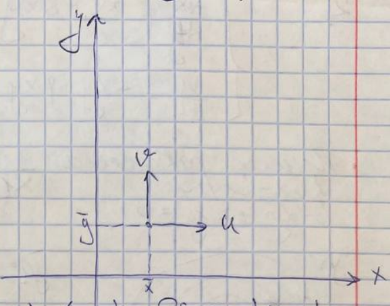 y
v
ȳ u
x
x̄